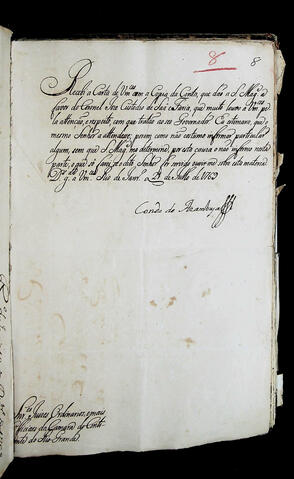 8 8
Recebi a Carta de Vm.ces com a Copia da Conta, que dão a S. Mag.e a
favor do Coronel Joze Custodio de Sáa e Faria, que muito louvo a Vm.ces pe
la attenção, e respeito, com que tratão ao seu Governador. Eu estimarei, que o
mesmo Senhor a attenda; porem como não costumo informar particular
algum, sem que S. Mag.e mo determine, por esta cauza o não informo nesta
parte, o que só farei, se o dito Senhor for servido ouvirme sobre esta materia
D.s g.e a Vm.ces Rio de Janr.o a 21 de Julho de 1769
Conde de Azambuja
Snr.es Juizes Ordinarios, e mais
Officiaes da Camara do Conti
nente do Rio Grande.